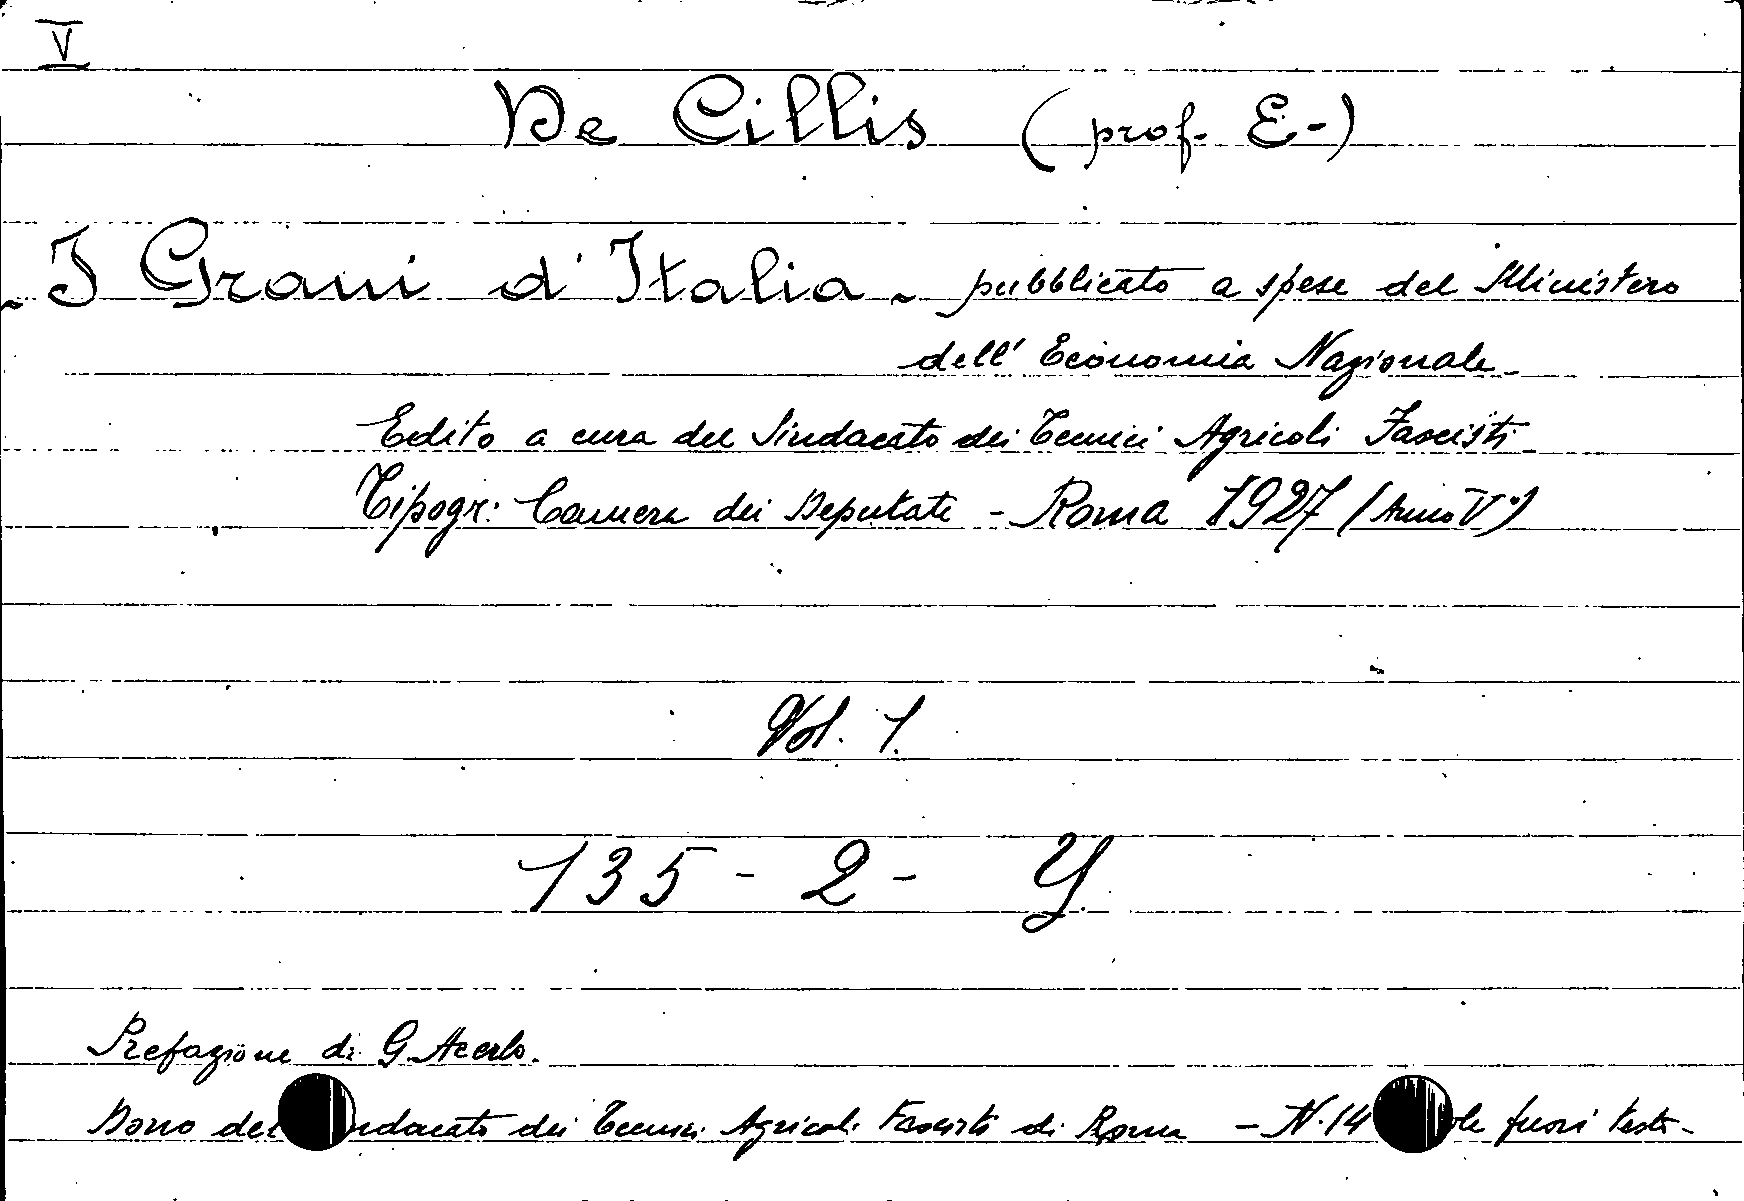 V
De Cillis (prof. E-)
- I Grani d'Italia - pubblicato a spese del Ministero
dell' Economia Nazionale -
Edito a cura del Sindacato dei Tecnici Agricoli Fascisti -
Tipogr: Camera dei Deputati - Roma 1927 (Anno V°)
Vol. 1.
135 - 2 - Y
Prefazione di G. Acerbo.
Dono del ndacato dei Tecnici Agricoli Fascisti di Roma - N. 14 ole fuori testo -